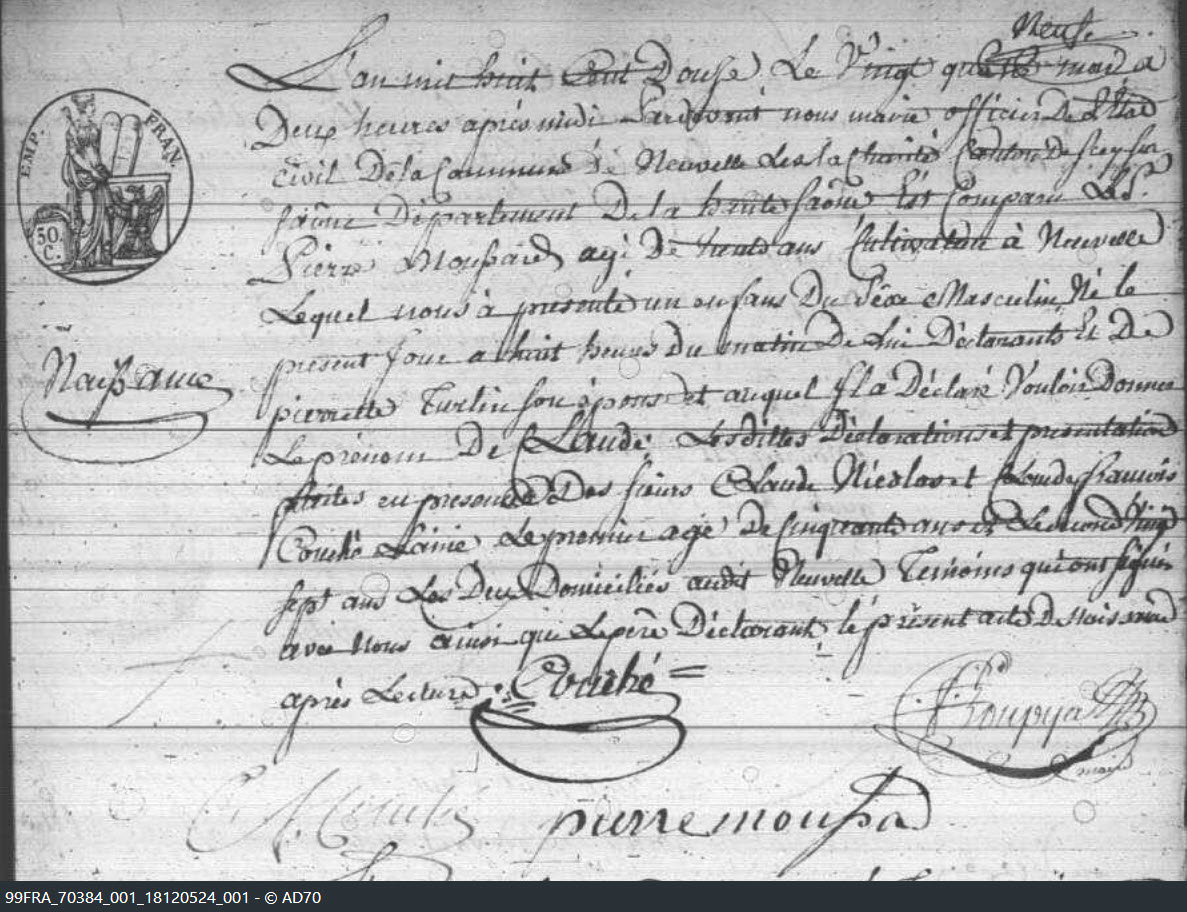 Neuf
L'an mil huit Cent Douse Le Vingt quatre mai a
Deux heures après midi Pardevant nous maire officier De L'Etat
EMP. FRAN.
Civil De la Commune De Neuvelle Les la Charité Canton De Scey sur
saône Département De la haute saône Est Comparu Le Sr
50.
C.
Pierre Moussard agé De trente ans Cultivateur à Neuvelle
Lequel nous à présenté un enfans Du Séxe Masculin Né le
présent jour a huit heures Du matin De Lui Déclarants Et De
Naissance
pierrette Turlin son épouse et auquel Il a Déclaré Vouloir Donner
Le prénom De Claude, Lesdittes Déclarations et présentation
faites en présence Des sieurs Claude Nicolas et Claude francois
Couché L'ainé Le premier agé De Cinquante ans et Le second Vingt
sept ans Les Deux Domiciliés audit Neuvelle Temoins qui ont signés
avec Nous ainsi que Le père Déclarant, le présent acte De Naissance
après Lecture. Couché
maire
C. N. Couché
pierre moussa
99FRA_70384_001_18120524_001 - © AD70